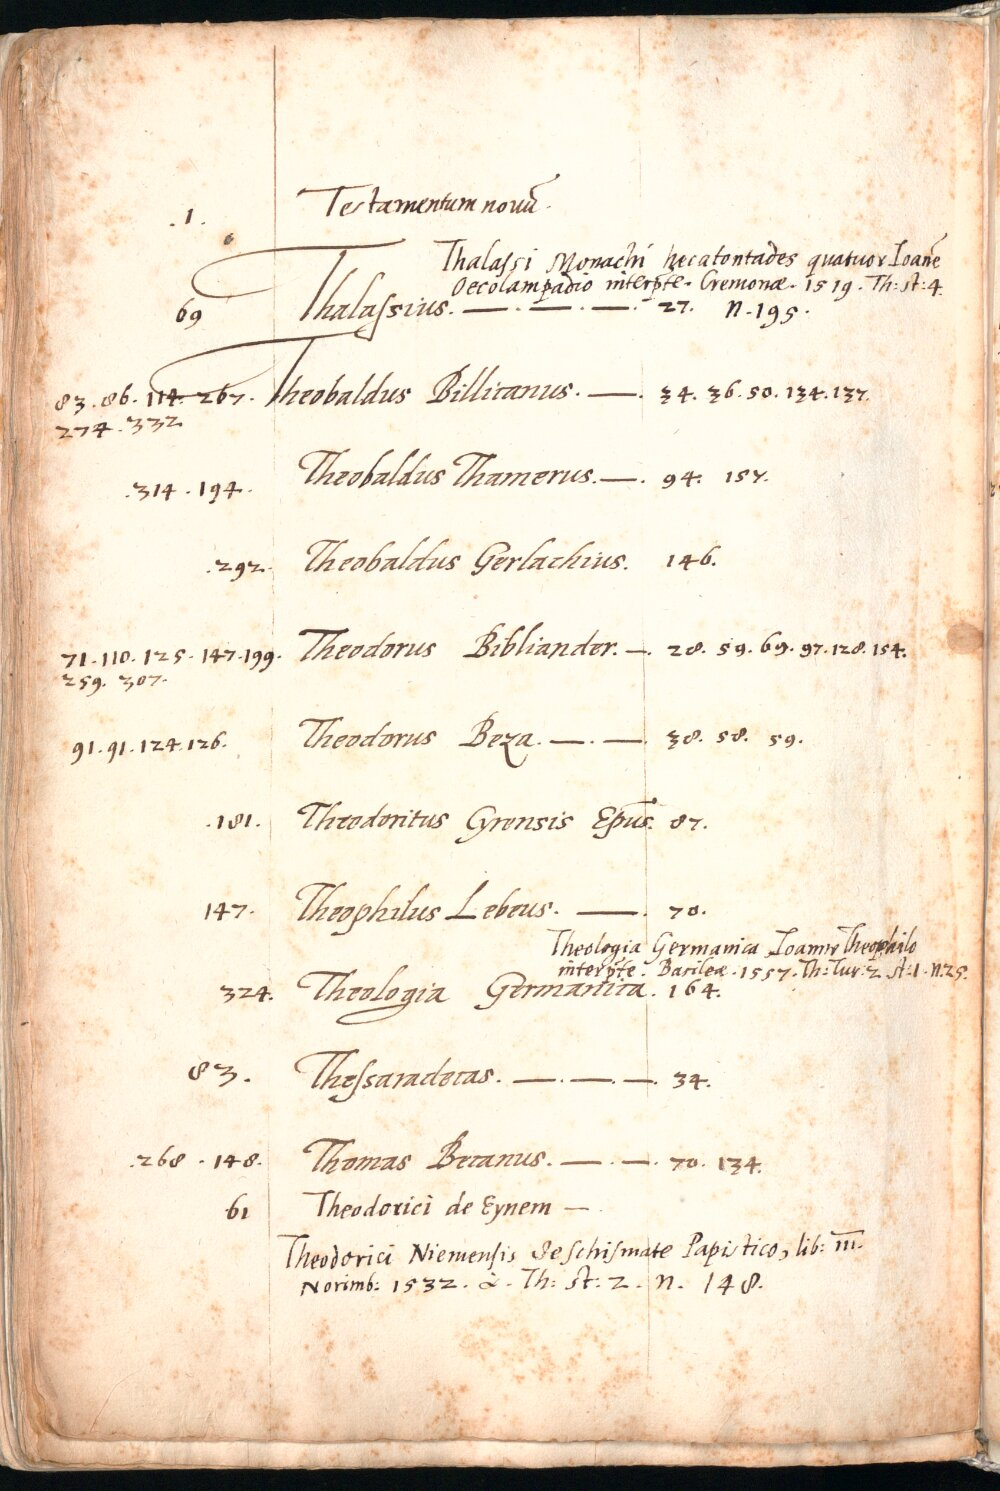 .1. Testamentum nouū.
Thalassi Monachi hecatontades quatuor Ioanē
Oecolampadio interp̄te. Cremonæ. 1519. Th: st: 4.
69 Thalaſsius. —. —. —. 27. N. 195.
83. 86. 114. 267. Theobaldus Billicanus. —. 34. 36. 50. 134. 137.
274. 332
.314. 194. Theobaldus Thamerus. —. 94. 157.
.292. Theobaldus Gerlachius. 146.
71. 110. 125. 147. 199. Theodorus Bibliander. —. 28. 59. 69. 97. 128. 154.
259. 307.
91. 91. 124. 126. Theodorus Beza. —. —. 38. 58. 59.
.181. Theodoritus Cyrensis Ep̄us. 87.
147. Theophilus Lebeus. —. 70.
Theologia Germanica, Ioanne Theophilo
interp̄te. Basileæ. 1557. Th: Tur: 2. st: 1. N. 25.
324. Theologia Germanica. 164.
83. Theſsaradecas. —. —. —. 34.
.268. 148. Thomas Becanus. —. —. 70. 134.
61 Theodorici de Eynem —
Theodorici Niemenſis de ſchiſmate Papistico, lib: III.
Norimb: 1532. &. Th: st: 2. N. 148.